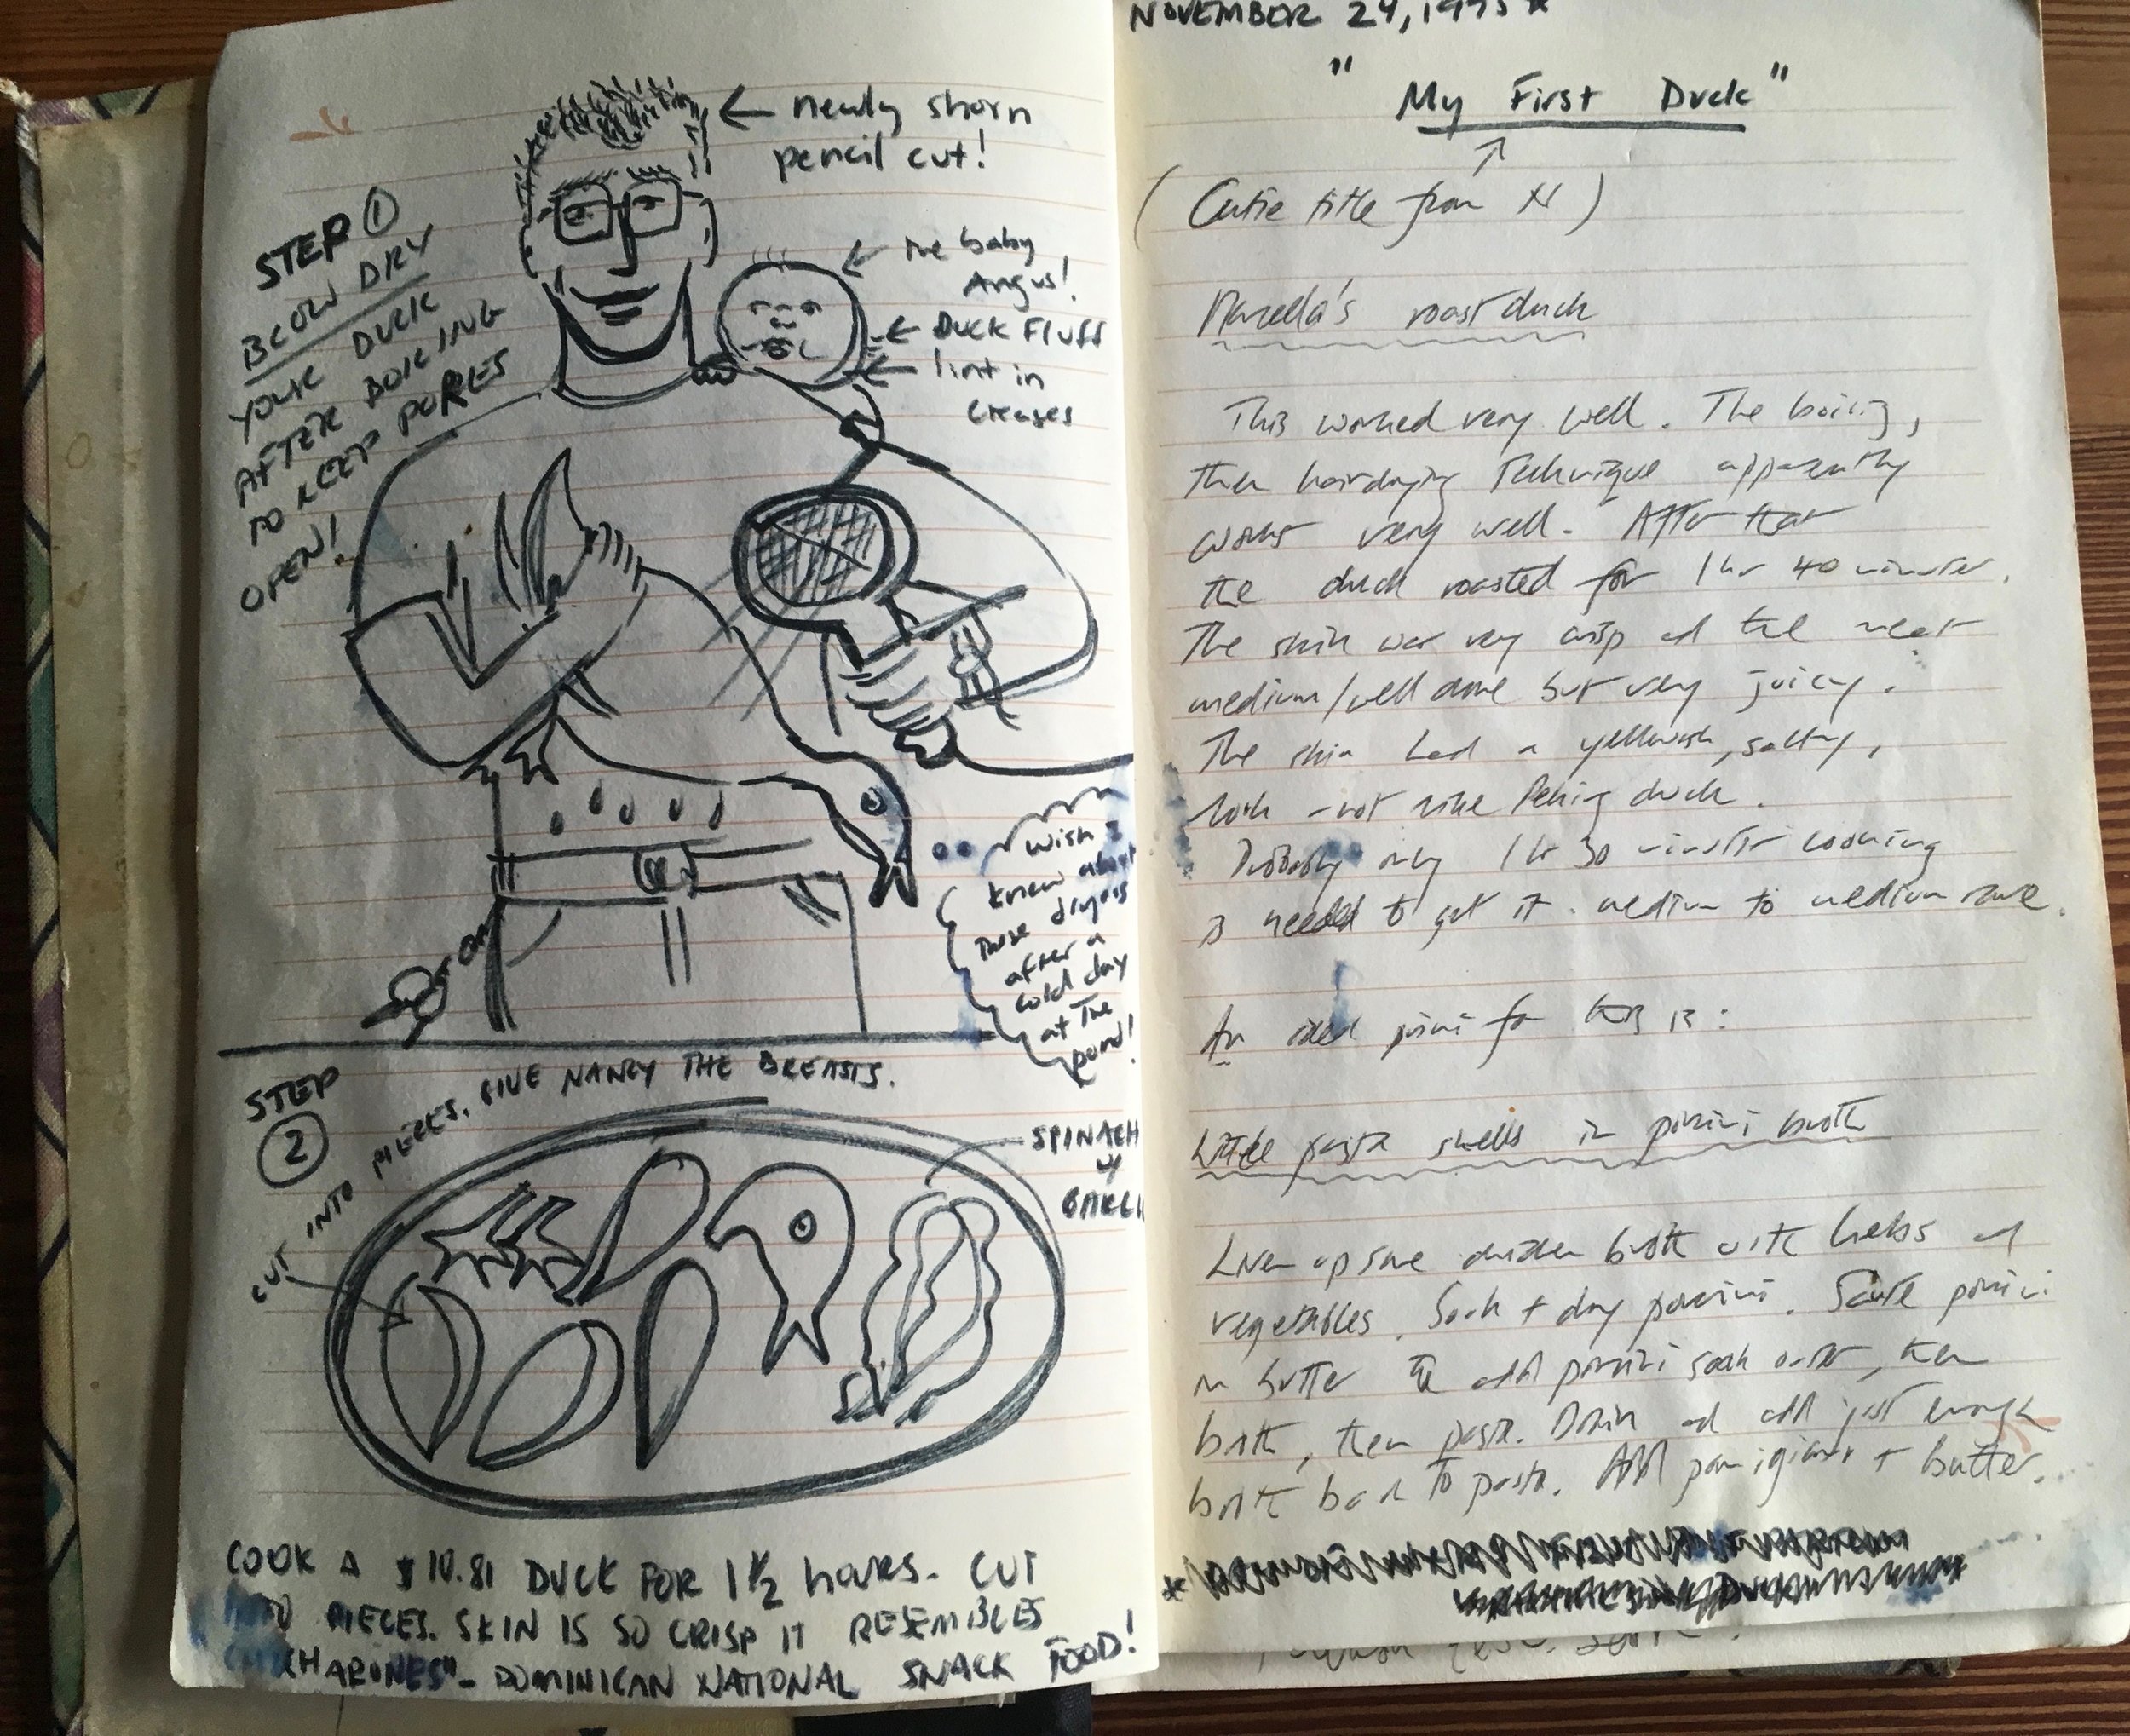 newly shorn
pencil cut!
STEP 1
BLOW DRY
YOUR DUCK
AFTER BOILING
TO KEEP PORES
OPEN!
The baby
Angus!
Duck Fluff
lint in
creases
Wish I
knew about
These dryers
after a
cold day
at The
pond!
STEP
2
CUT INTO PIECES. GIVE NANCY THE BREASTS.
SPINACH
w/
GARLI
COOK A $10.81 DUCK FOR 1 1/2 hOURS. CUT
INTO PIECES. SKIN IS SO CRISP IT RESEMBLES
"CHICHARONES" - DOMINICAN NATIONAL SNACK FOOD!
NOVEMBER 24, 1995*
"My First Duck"
(Cutie title from N)
Marcella's roast duck
This worked very well. The boiling,
then hairdrying Technique apparently
works very well. After that
the duck roasted for 1 hr 40 minutes.
The skin was very crisp and the meat
medium/well done but very juicy.
The skin had a yellowish, salty,
look - not like Peking duck.
Probably only 1 hr 30 minutes cooking
is needed to get it medium to medium rare.
An ideal primi for this is:
Little pasta shells in porcini broth
Liven up some chicken broth with herbs and
vegetables. Soak + dry porcini. Saute porcini
in butter then add porcini soak water, then
broth, then pasta. Drain and add just enough
broth back to pasta. Add parmigiano + butter.
*